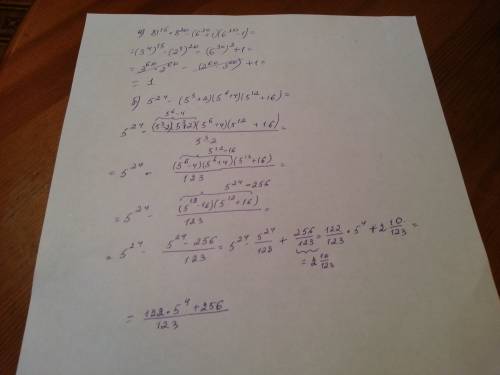 а) 81¹⁵ · 8²⁰ − (6³⁰ + 1)(6³⁰ − 1) =
= (3⁴)¹⁵ · (2³)²⁰ − (6³⁰)² + 1 =
= 3⁶⁰ · 2⁶⁰ − (2⁶⁰ · 3⁶⁰) + 1 =
= 1
б) 5²⁴ − (5³ + 2)(5⁶ + 4)(5¹² + 16) =
5⁶ − 4
5²⁴ − (5³ − 2)(5³ + 2)(5⁶ + 4)(5¹² + 16) / 5³ 2 =
5¹² − 16
= 5²⁴ − (5⁶ − 4)(5⁶ + 4)(5¹² + 16) / 123 =
5²⁴ − 256
= 5²⁴ − (5¹² − 16)(5¹² + 16) / 123 =
= 5²⁴ − 5²⁴ − 256 / 123 = 5²⁴ − 5²⁴ / 123 + 256 / 123 = 122 / 123 · 5⁴ + 2 10 / 123 =
= 2 10 / 123
= 122 · 5⁴ + 256 / 123